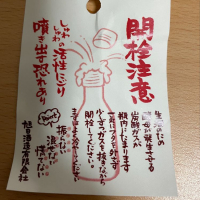 開栓注意
しゅわ
しゅわの活性にごり
噴き出す恐れあり
生酒のため
酵母が発生させる
炭酸ガスが
瓶内にたまります
一気にフタを外さず
少しずつガスを抜きながら
開栓してください。
振らない
旭日酒造有限会社